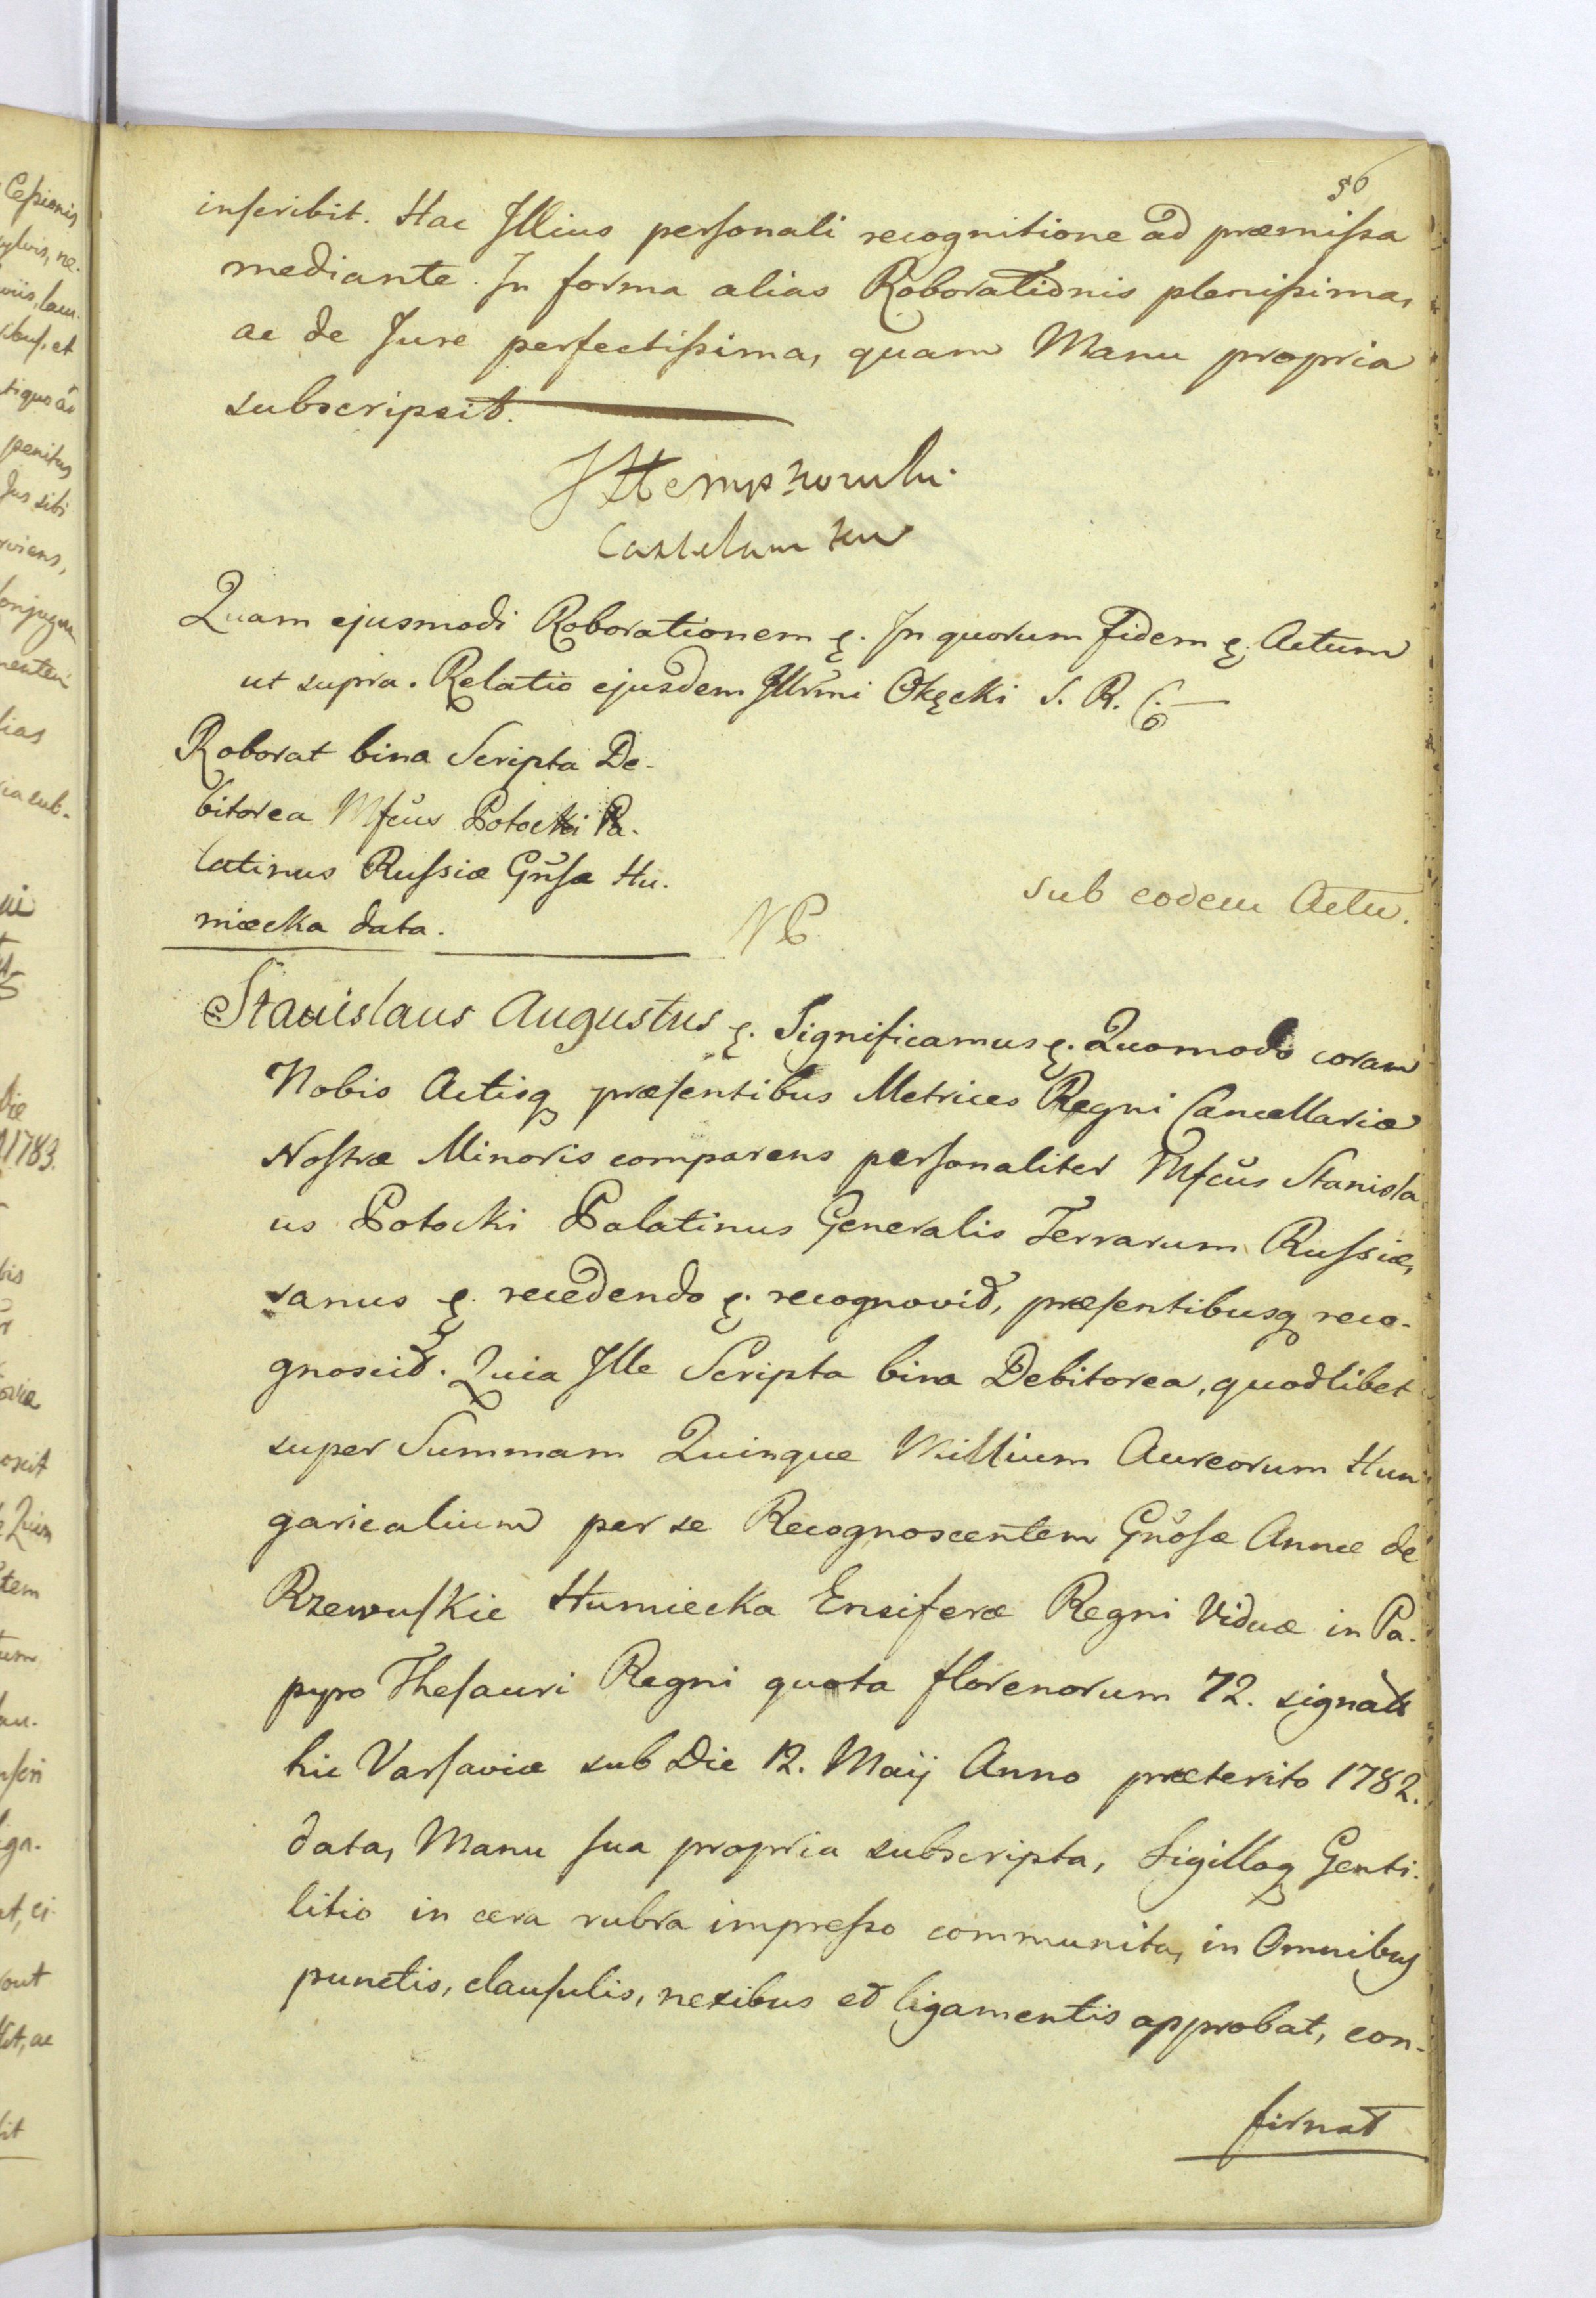 56
inscribit. Hac Illius personali recognitione ad præmissa
mediante. In forma alias Roborationis plenissima,
ac de Jure perfectissima, quam Manu propria
subscripsit.
Quam ejusmodi Roborationem ę. In quorum Fidem ę. Actum
ut supra. Relatio ejusdem Illrmi Okęcki S. R. C.
Roborat bina Scripta De-
bitorea Mfcus Potocki Pa-
latinus Russiæ Gnsæ Hu-
miecka data.
sub eodem Actu.
Stanislaus Augustus ę. Significamus ę. Quomodo coram
Nobis Actisq præsentibus Metrices Regni Cancellariæ
Nostræ Minoris comparens personaliter Mfcus Stanisla
us Potocki Palatinus Generalis Terrarum Russiæ,
sanus ę. recedendo ę. recognovit, præsentibusq reco-
gnoscit. Quia Ille Scripta bina Debitorea, quodlibet
super Summam Quinque Millium Aureorum Hun
garicalium per se Recognoscentem Gnosæ Annæ de
Rzewuskie Humiecka Ensiferæ Regni Viduæ in Pa-
pyro Thesauri Regni quota florenorum 72. signato
hic Varsaviæ sub Die 12. Maij Anno præterito 1782.
data, Manu sua propria subscripta, Sigilloq Genti-
litio in cera rubra impresso communita, in Omnibus
punctis, clausulis, nexibus et ligamentis approbat, con-
firmat